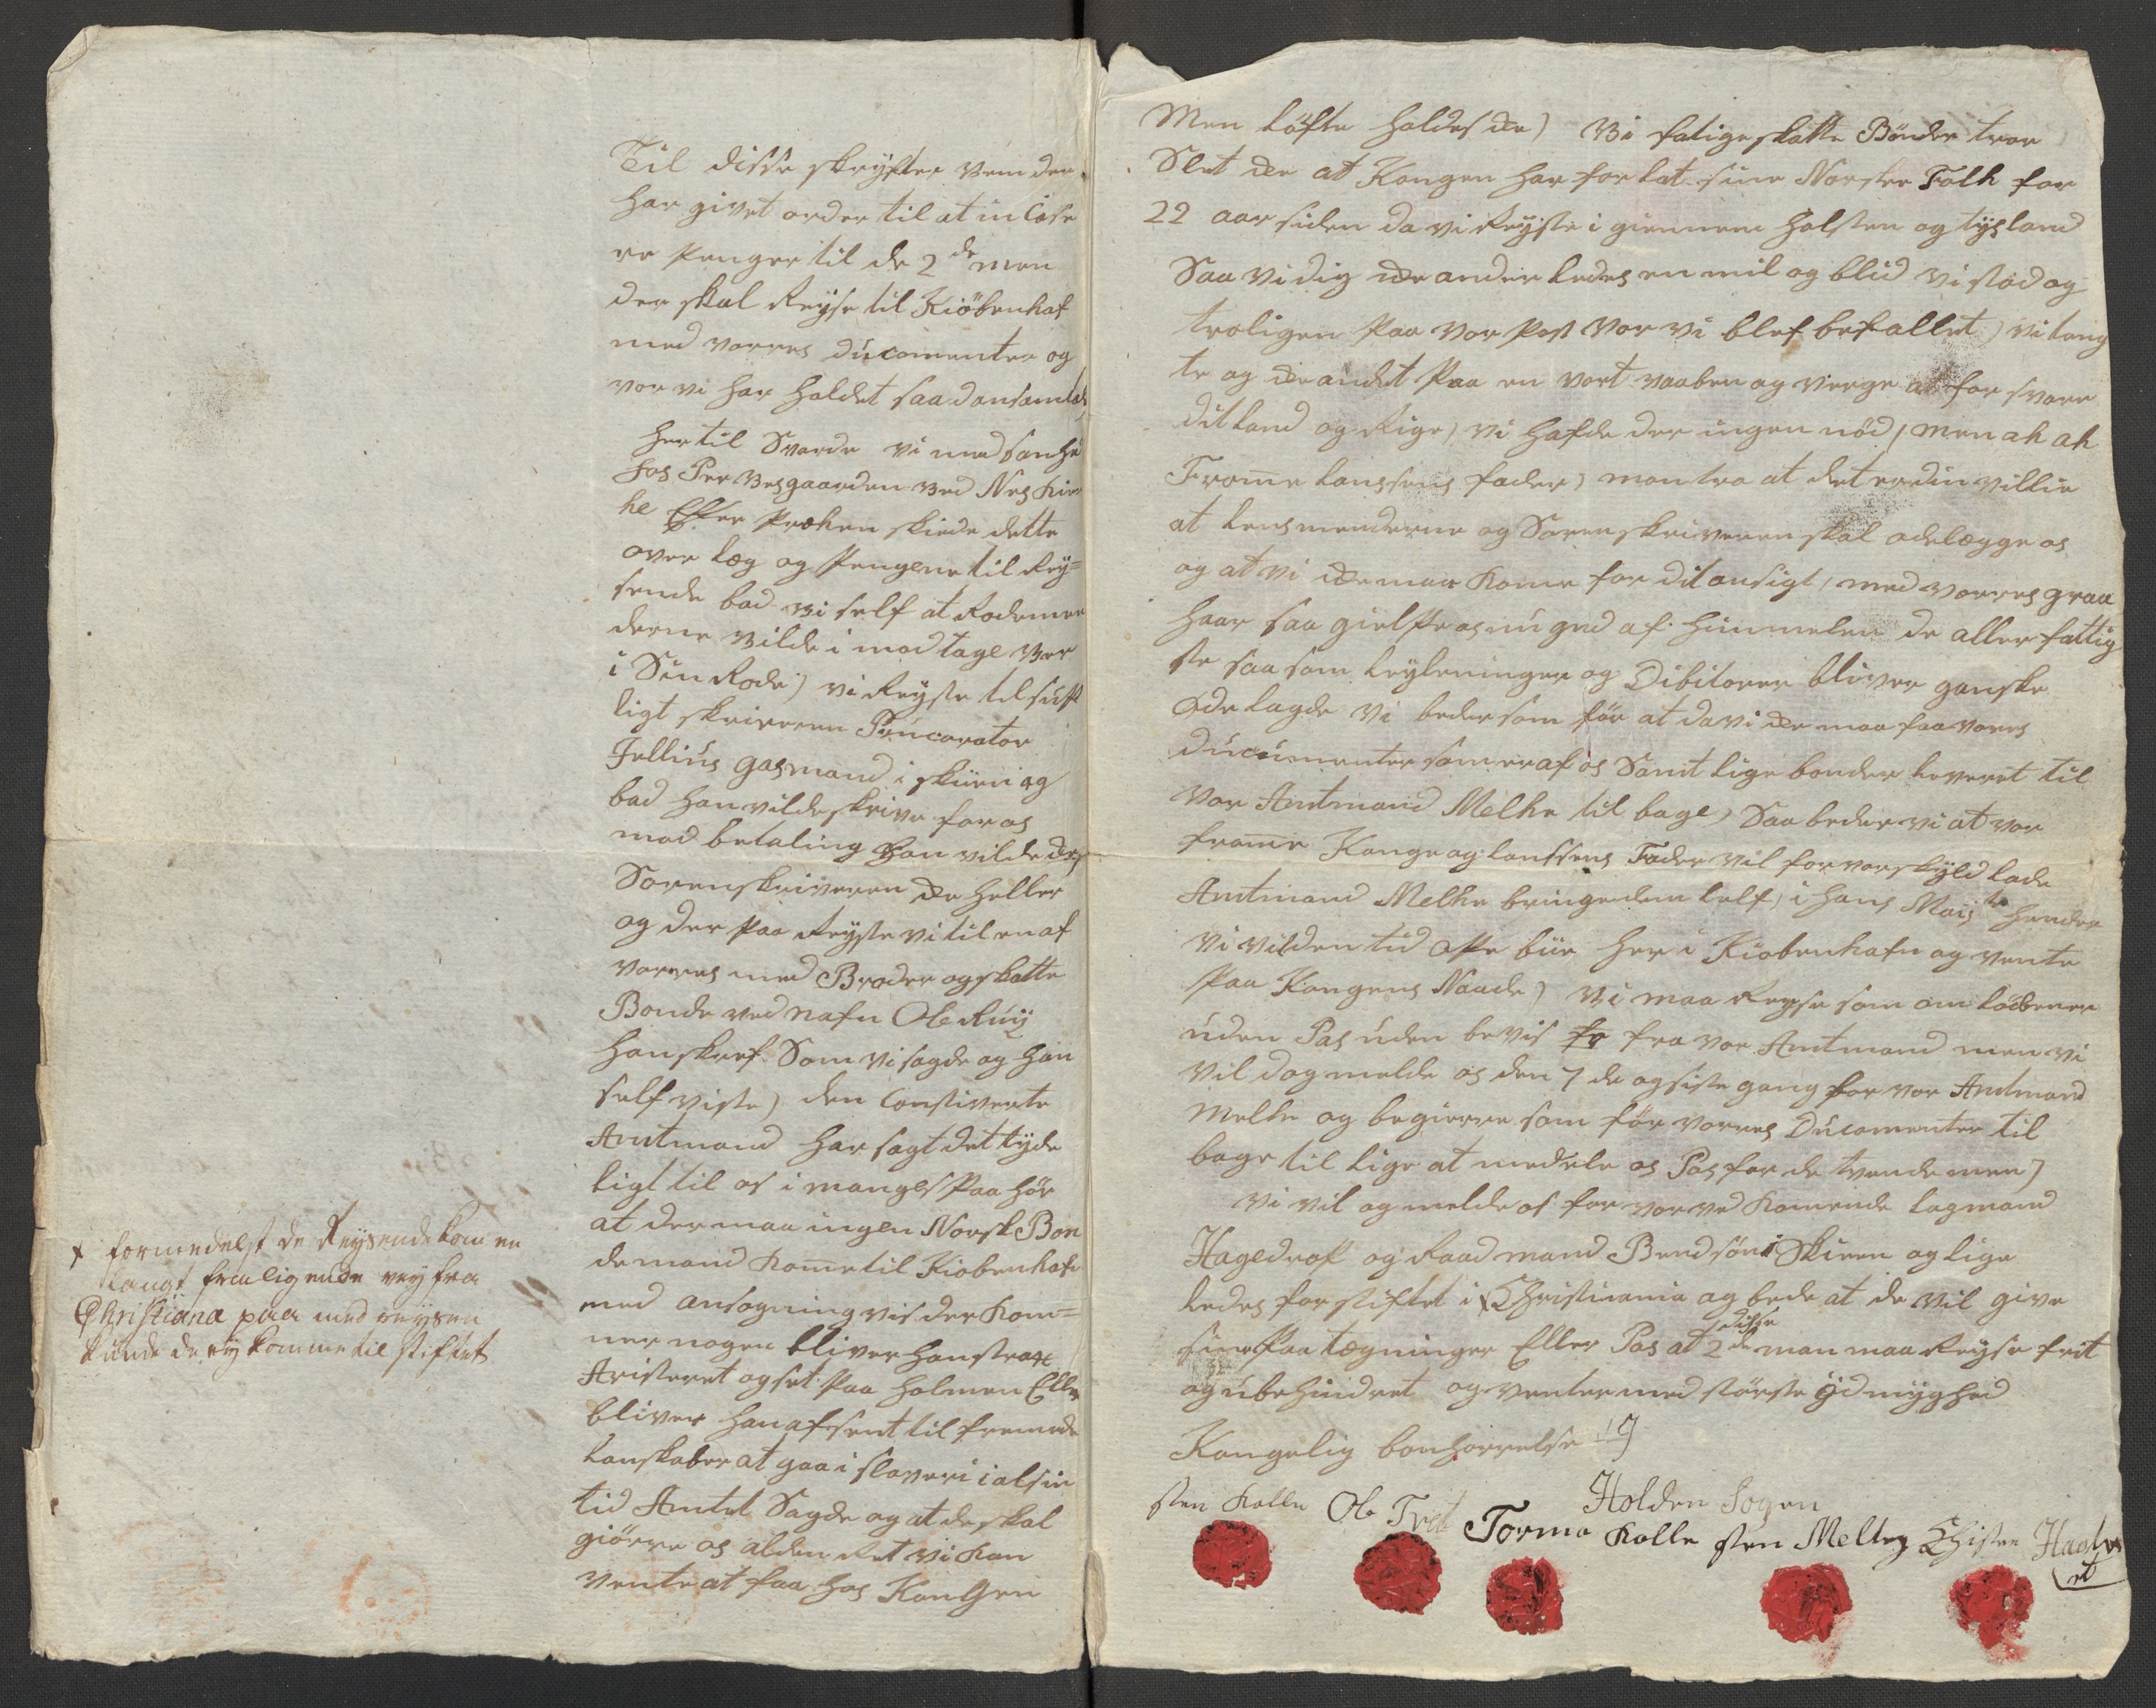 Til disse skrifter vem der
har givet order til at in Case
re Penger til de 2de men
der skal Reyse til Kiöbenhaf
med vorres ducomenter og
vor vi har holdet saadansamlede
her til Svarde vi med sanhe
hos Per Vesgaarden ved Nes Kir
ke Efter Præken skiede dette
over læg og Pengene til Rey=
sende bad vi self at Rodemen
derne vilde i mod tage Ver
i Sin Rode) vi Reyste til
ligt skriveren Prucorator
Jellius gasmand i skien og
bad han vilde skrive for os
mod betaling han vilde
Sorenskriveren heller
og der Paa Reyste vi til en af
vorres med Broder og skatte
Bonde ved nafn Ole Ruy
han skref Som vi sagde og han
self viste) den Constiverte
Amtmand har sagt det tyde
ligt til os i manges Paa hör
at der maa ingen Norsk Bon
demand kome til Kiobenhafn
med ansogning vis der Kom=
mer nogen bliver han strax
Aristeret og sat Paa Holmen Eller
bliver han afsent til fremede
Lanskaber at gaa i slaveri i al sin
tid Amtet Sagde og at de skal
giörre os al den Ret vi kan
vente at faa hos Kongen
x formedelst de Reysende kom en
langt fraligende vey fra
Christiana paa med reysen
kunde de ey komme til stiftet
Men Löfte holdes) Vi fatige skatte Bönder tror
Slet at Kongen har forlat sine Norske Folk for
22 aar siden da vi Reyste i giennem Holsten og tysland
Saa vi dig anderledes en mil og blid vi stod og
troligen Paa vor Post vor vi blef befallet) vi teng
te og andet Paa en vort vaaben og verge at forsvare
dit Land og Rige) vi hafde der ingen nöd / men ak ak
Frome Lanssens fader) mon tro at det er din villie
at lensmenderne og Sorenskriveren skal odelægge os
og at vi maa kome for dit ansigt / med vorres graa
haar saa hielpe os nu gud af himmelen de aller fattig
ste saa som leylendinger og Dibitorer bliver ganske
ödelagde vi beder som för at da vi maa faa vores
ducumenter som er af os Samtlige bonder leveret til
vor Amtmand Melke til bage) Saa beder vi at vor
frome Konge og Lanssens Fader vil for vor skyld lade
Amtmand Melke bringe dem self) i hans Mays hender
vi vil den tid Ofte bie her i Kiobenhafn og vente
Paa Kongens Naade) vi maa Reyse som om löbener
uden Pas uden bevis fra vor Amtmand men vi
vil dog melde os den 7 de og siste gang for vor Amtmand
Melke og begierre som för vorres Ducomenter til
bage til lige at medele os Pas for de tvende men)
vi vil og melde os for vor ved komende Lagmand
Hagedrof og Raadmand Bendsön i Skien og lige
ledes for stiftet i x Christiania og bede at de vil give
sine Paategninger Eller Pas at disse 2de man maa Reyse frit
og ubehindret og venter med störste ydmyghed
Kongelig bonhörrelse
Holden Sogen
sten kolle Ole Tvet Tormo Kolle sten Melteg Christen Haatvet